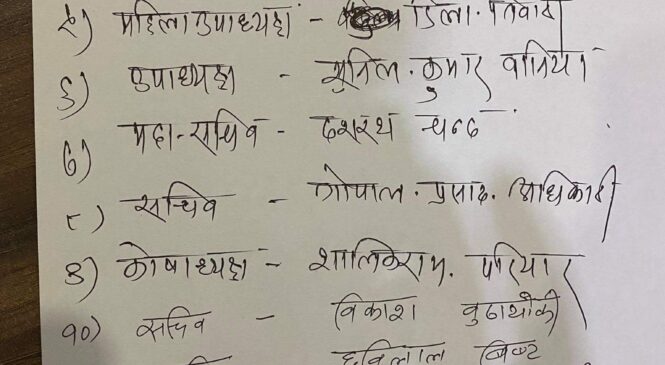 ५) महिला उपाध्यक्ष - डिला. तिवारी
६) उपाध्यक्ष - सुनिल. कुमार वानिया
७) महा-सचिव - दशरथ चन्द
८) सचिव - गोपाल. प्रसाद. अधिकारी
९) कोषाध्यक्ष - शालिकराम. परियार
१०) सचिव - विकाश वुढाथोकी
छविलाल विष्ट